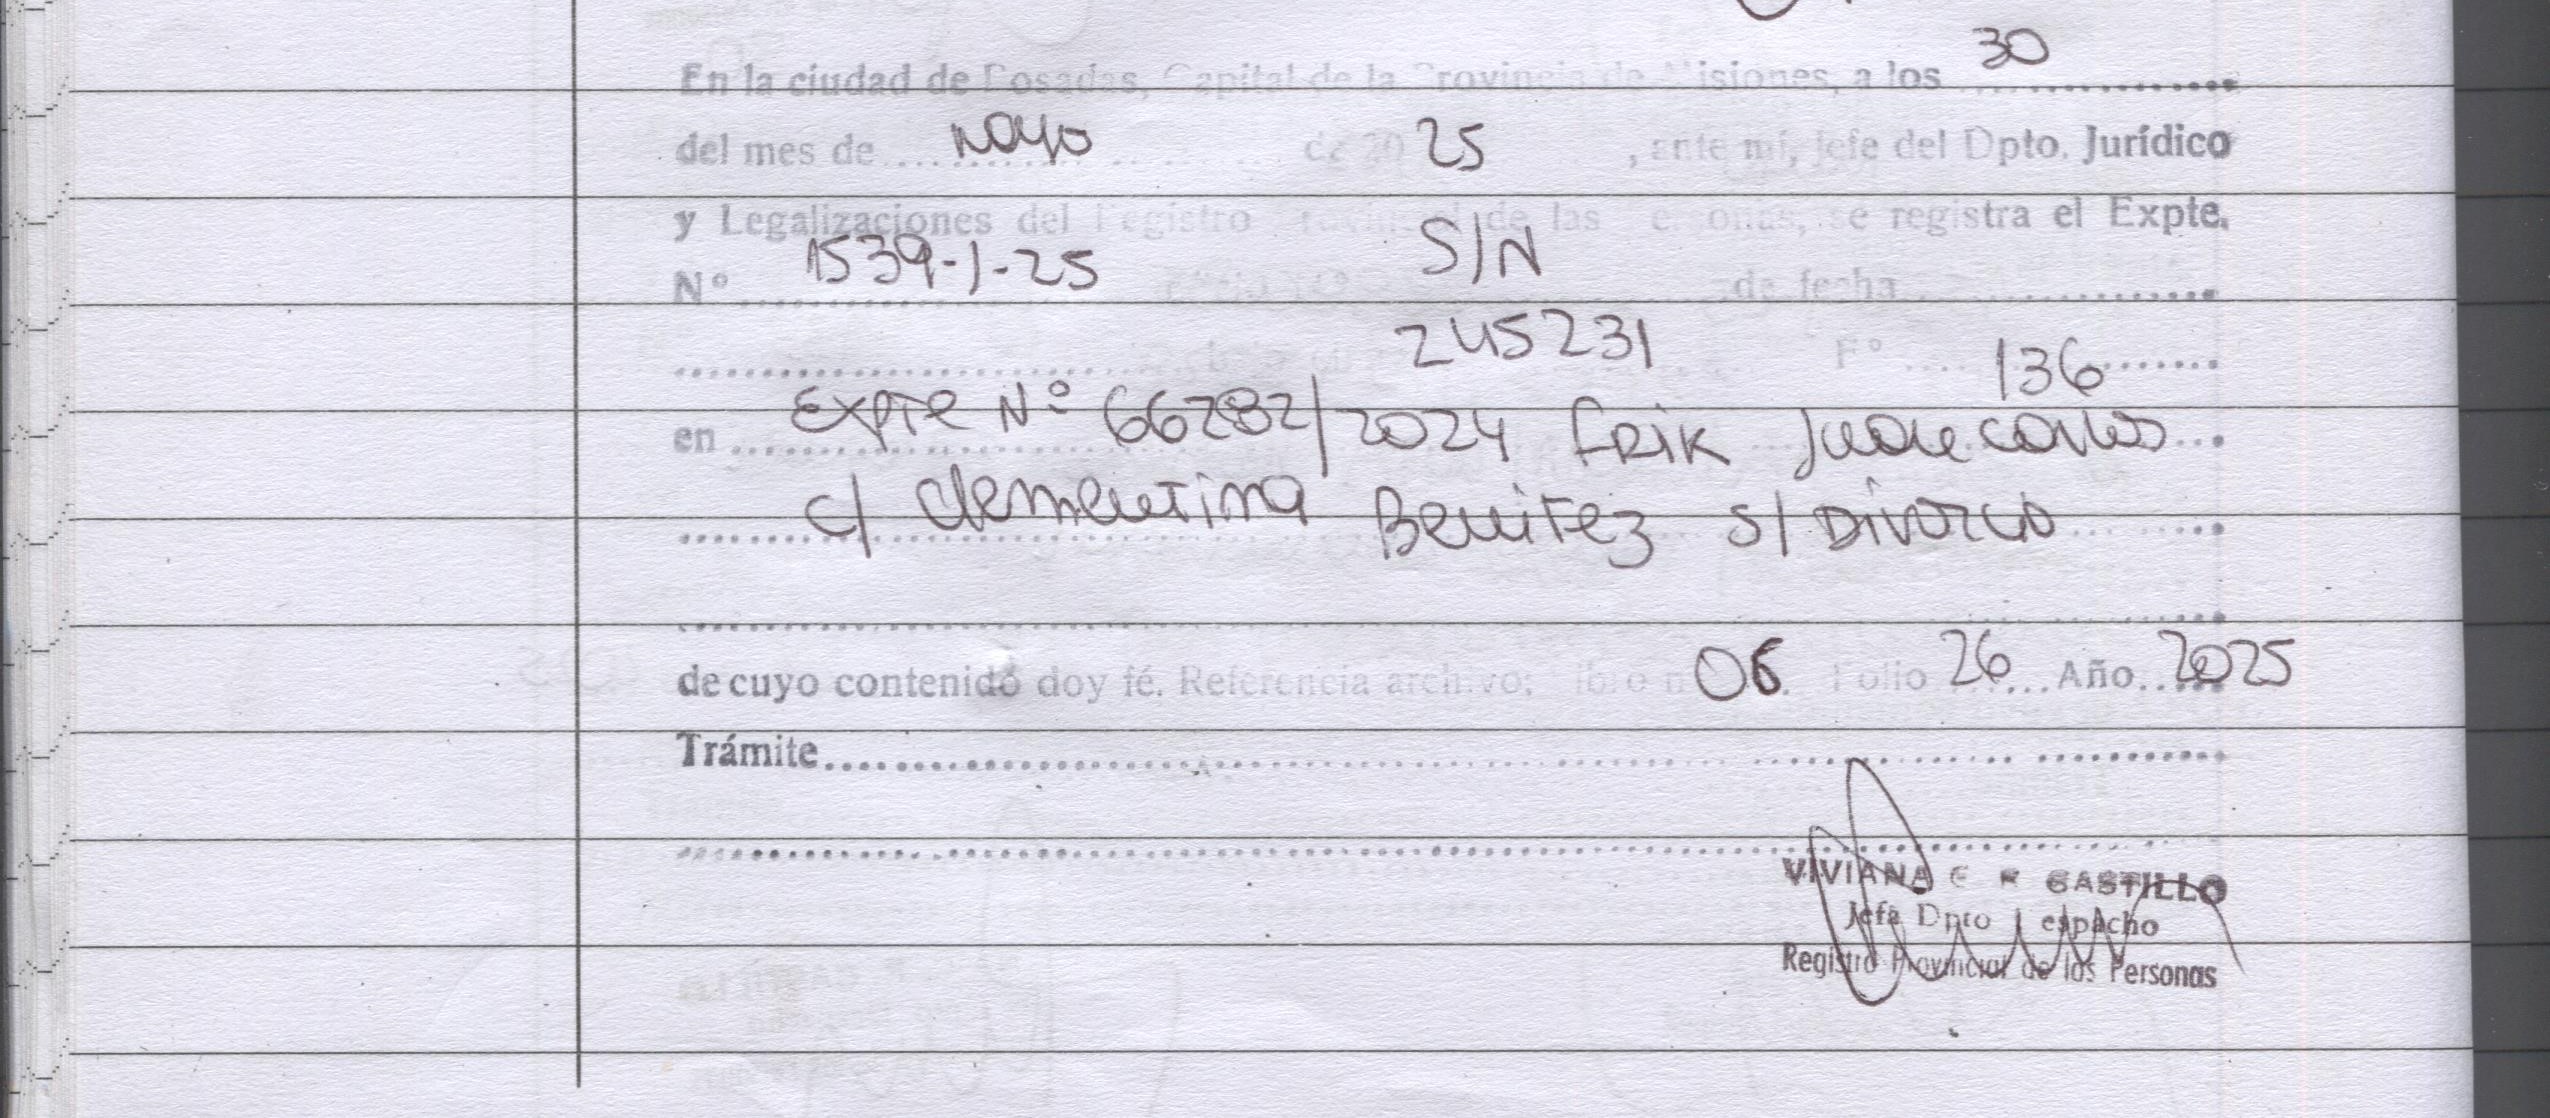 30
En la ciudad de Posadas, Capital de la Provincia de Misiones, a los ..............
del mes de ............ mayo ............ de 20 25 , ante mí, Jefe del Dpto. Jurídico
y Legalizaciones del Registro Provincial de las Personas, se registra el Expte.
N° 1539-1-25 S/N de fecha
245231 F° 136
en Expte N° 66282/2024 Erik Juan Carlos
c/ Clementina Benitez s/ Divorcio
de cuyo contenido doy fé. Referencia archivo: libro n 06 Folio 26 Año 2025
Trámite
VIVIANA E R CASTILLO
Jefa Dpto Despacho
Registro Provincial de las Personas